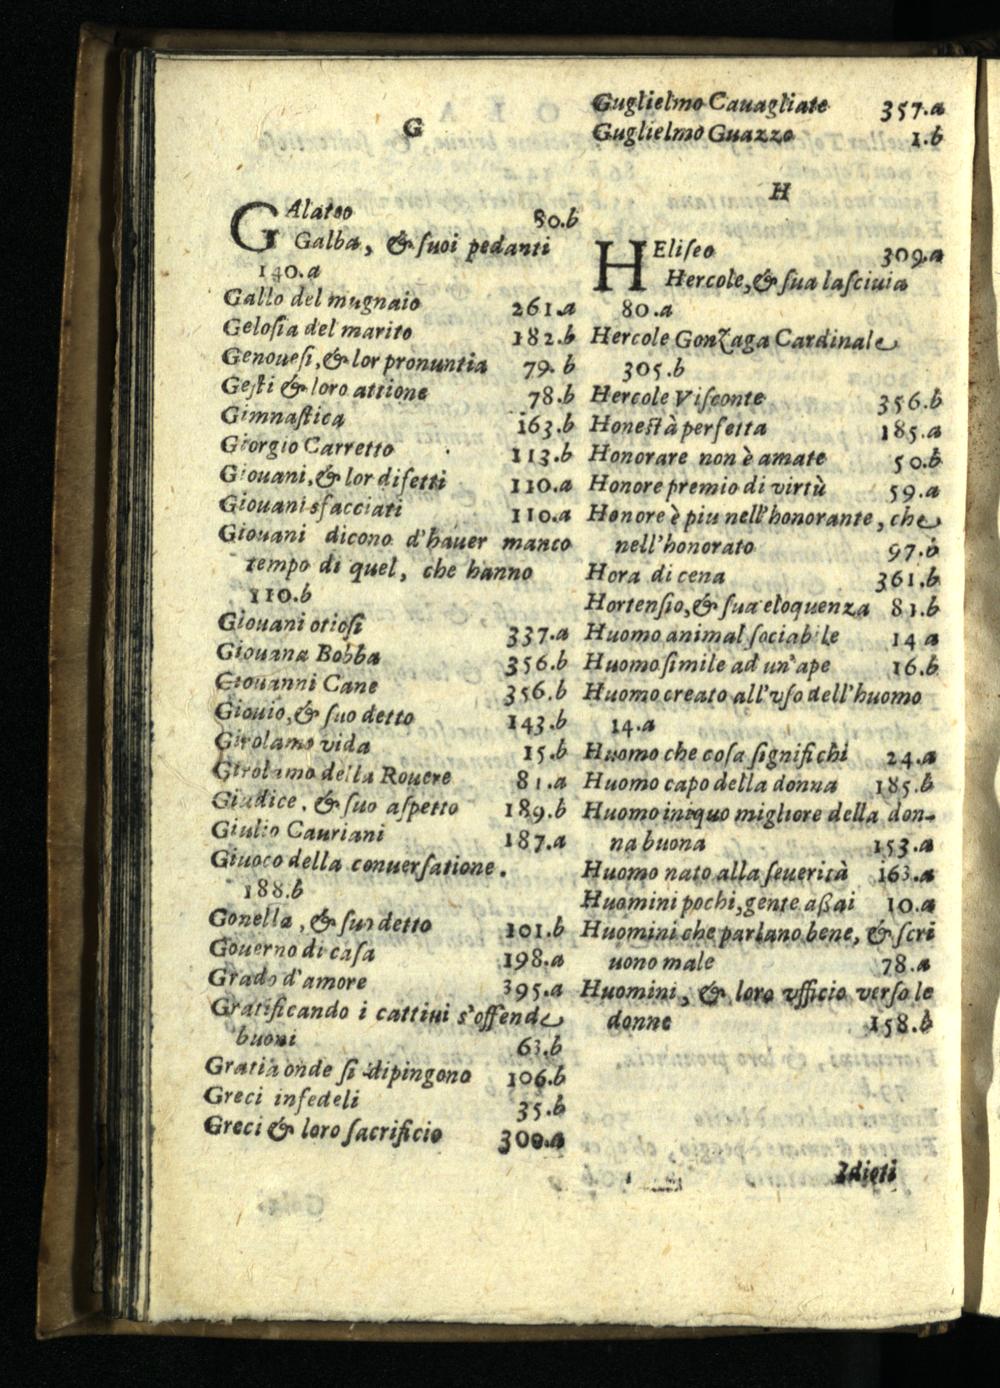 G
GAlateo 80.b
Galba, & suoi pedanti
140.a
Gallo del mugnaio 261.a
Gelosia del marito 182.b
Genouesi, & lor pronuntia 79.b
Gesti & loro attione 78.b
Gimnastica 163.b
Giorgio Carretto 113.b
Giouani, & lor difetti 110.a
Giouani sfacciati 110.a
Giouani dicono d'hauer manco
tempo di quel, che hanno
110.b
Giouani otiosi 337.a
Giouana Bobba 356.b
Giouanni Cane 356.b
Giouio, & suo detto 143.b
Girolamo vida 15.b
Girolamo della Rouere 81.a
Giudice, & suo aspetto 189.b
Giulio Cauriani 187.a
Giuoco della conuersatione.
188.b
Gonella, & suo detto 101.b
Gouerno di casa 198.a
Grado d'amore 395.a
Gratificando i cattiui s'offende
buoni 63.b
Gratia onde si dipingono 106.b
Greci infedeli 35.b
Greci & loro sacrificio 300.a
Guglielmo Cauagliate 357.a
Guglielmo Guazzo 1.b
H
HEliseo 309.a
Hercole, & sua lasciuia
80.a
Hercole Gonzaga Cardinale
305.b
Hercole Visconte 356.b
Honestà perfetta 185.a
Honorare non è amate 50.b
Honore premio di virtù 59.a
Honore è piu nell'honorante, che
nell'honorato 97.b
Hora di cena 361.b
Hortensio, & sua eloquenza 81.b
Huomo animal sociabile 14 a
Huomo simile ad un'ape 16.b
Huomo creato all'vso dell'huomo
14.a
Huomo che cosa significhi 24.a
Huomo capo della donna 185.b
Huomo iniquo migliore della don-
na buona 153.a
Huomo nato alla seuerità 163.a
Huomini pochi, gente aßai 10.a
Huomini che parlano bene, & scri
uono male 78.a
Huomini, & loro vfficio verso le
donne 158.b
Idioti